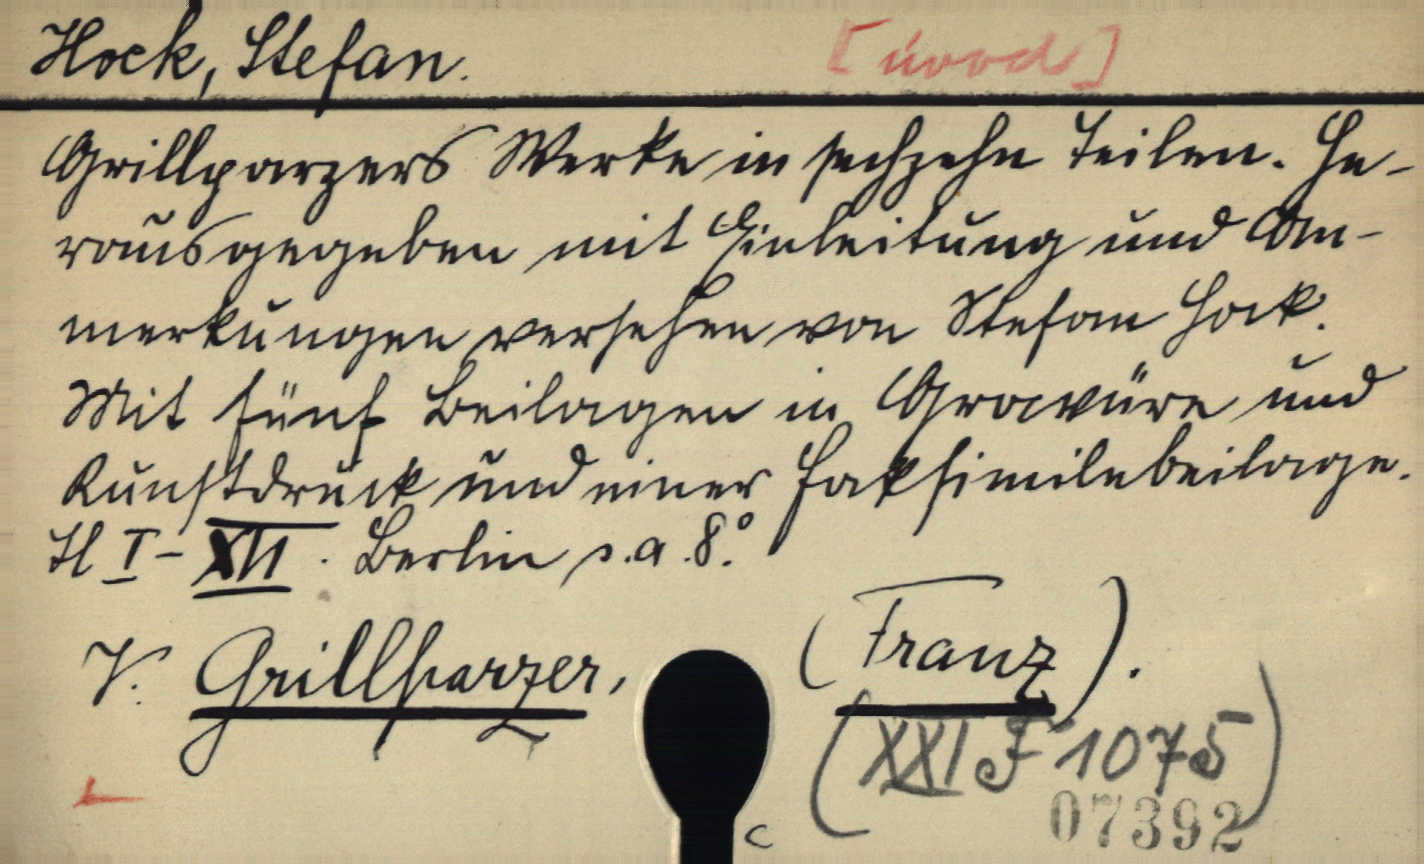 Hock, Stefan.
[úvod]
Grillparzers Werke in sechzehn Teilen. He-
rausgegeben mit Einleitung und An-
merkungen versehen von Stefan Hock.
Mit fünf Beilagen in Gravüre und
Kunstdruck und einer Faksimilebeilage.
Tl I - XVI. Berlin s.a. 8.°
V. Grillparzer, (Franz).
(XXI F 1075)
07392
c